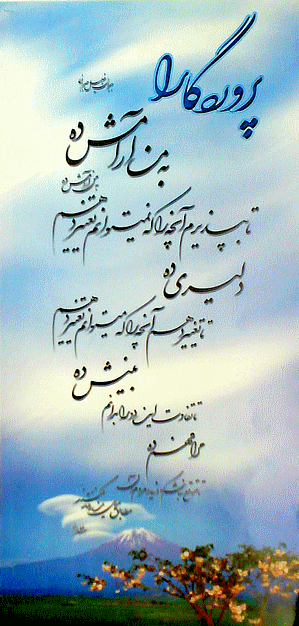 پروردگارا
به من آرامش ده
تا بپذیرم آنچه را که نمیتوانم تغییر دهم
دلیری ده
تا تغییر دهم آنچه را که میتوانم تغییر دهم
بینش ده
تا تفاوت این دو را بدانم
مرا فهم ده